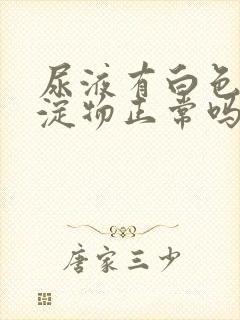 尿液有白色
淀物正常吗
唐家三少